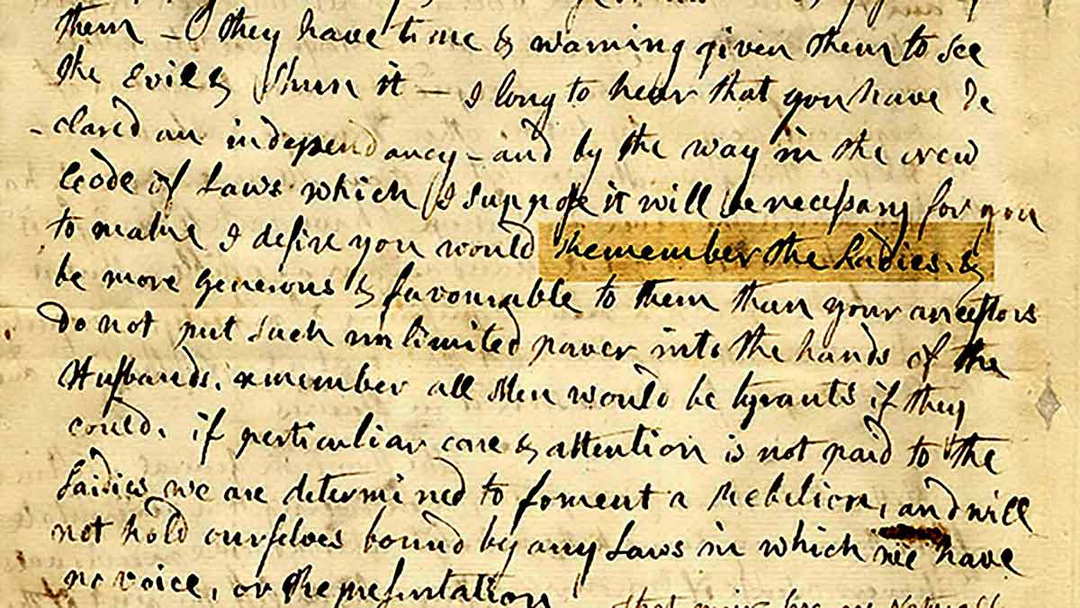 them - O they have time & warning given them to see
the Evil & shun it - I long to hear that you have de
-clared an independancy - and by the way in the new
Code of Laws which I suppose it will be necessary for you
to make I desire you would Remember the Ladies, &
be more generous & favourable to them than your ancestors
do not put such unlimited power into the hands of the
Husbands. remember all Men would be tyrants if they
could. if perticuliar care & attention is not paid to the
Laidies we are determined to foment a Rebelion, and will
not hold ourselves bound by any Laws in which we have
no voice, or Representation
that